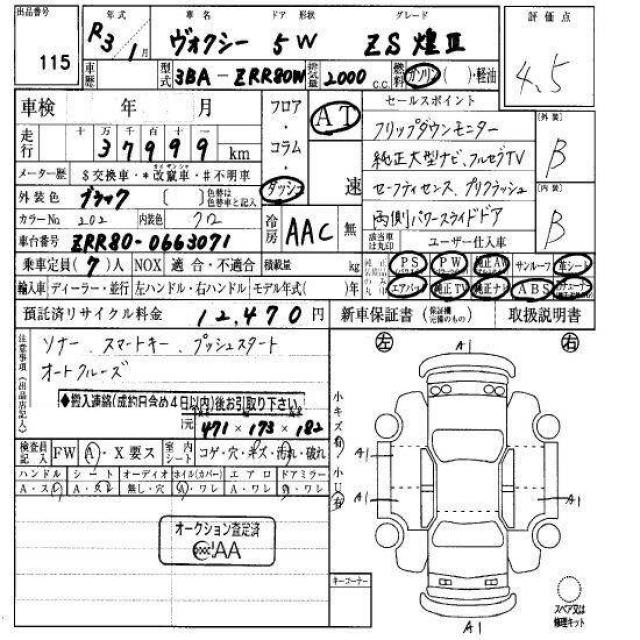 出品番号
115
年式
R3年 1月
車名
ヴォクシー
ドア 形状
5W
グレード
ZS 煌Ⅲ
評価点
4.5
車歴
型式
3BA-ZRR80W
排気量
2000 c.c.
燃料
ガソリン ( )・軽油
車検 年 月
走行
十万千百十一
37999 km
メーター歴 $交換車・*改竄車・#不明車
外装色 ブラック 〔 〕 色替は色替車と記入
カラーNo 202 内装色 クロ
車台番号 ZRR80-0663071
フロア・コラム・ダッシュ
AT
速
冷房 AAC 無
セールスポイント
フリップダウンモニター
純正大型ナビ、フルセグTV
セーフティセンス、プリクラッシュ
両側パワースライドドア
[外装]
B
[内装]
B
該当車は丸印
ユーザー仕入車
乗車定員(7)人 NOX 適合・不適合 積載量 kg
PS PW 純正AW サンルーフ 革シート
輸入車 ディーラー・並行 左ハンドル・右ハンドル モデル年式( )年
エアバッグ 純正TV 純正ナビ ABS
預託済リサイクル料金 12,470円
新車保証書 (保証書記載のもの) 取扱説明書
注意事項(出品店記入)
ソナー、スマートキー、プッシュスタート
オートクルーズ
◆搬入連絡(成約日含め4日以内)後お引取り下さい。
元 471 × 173 × 182
検査員記入 FW A・X要ス 室内シート コゲ・穴・キズ・汚れ・破れ
ハンドル シート オーディオ ホイル(カバー) エアロ ドアミラー
A・スレ A・スレ 無し・穴 A・ワレ A・ワレ A・ワレ
小キズ有
小U有
オークション査定済
AA
キーコーナー
左
右
A1
A1
A1
A1
A1
スペア又は修理キット